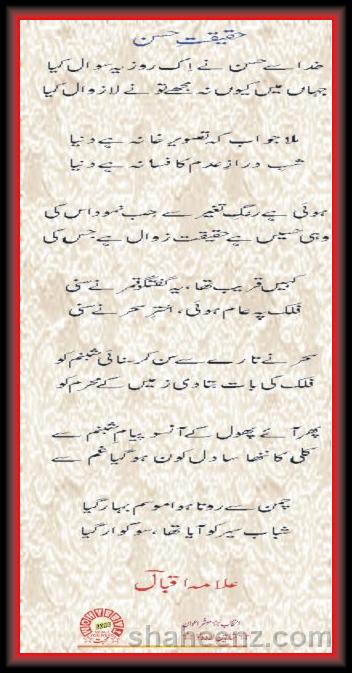 حقیقت حسن
خدا سے حسن نے اک روز یہ سوال کیا
جہاں میں کیوں نہ مجھے تو نے لازوال کیا
ملا جواب کہ تصویر خانہ ہے دنیا
شب دراز عدم کا فسانہ ہے دنیا
ہوئی ہے رنگ تغیر سے جب نمود اس کی
وہی حسیں ہے حقیقت زوال ہے جس کی
کہیں قریب تھا، یہ گفتگو قمر نے سنی
فلک پہ عام ہوئی، اختر سحر نے سنی
سحر نے تارے سے سن کر سنائی شبنم کو
فلک کی بات بتا دی زمیں کے محرم کو
بھر آئے پھول کے آنسو پیام شبنم سے
کلی کا ننھا سا دل خون ہو گیا غم سے
چمن سے روتا ہوا موسم بہار گیا
شباب سیر کو آیا تھا، سوگوار گیا
علامہ اقبالؒ
shaheenz.com